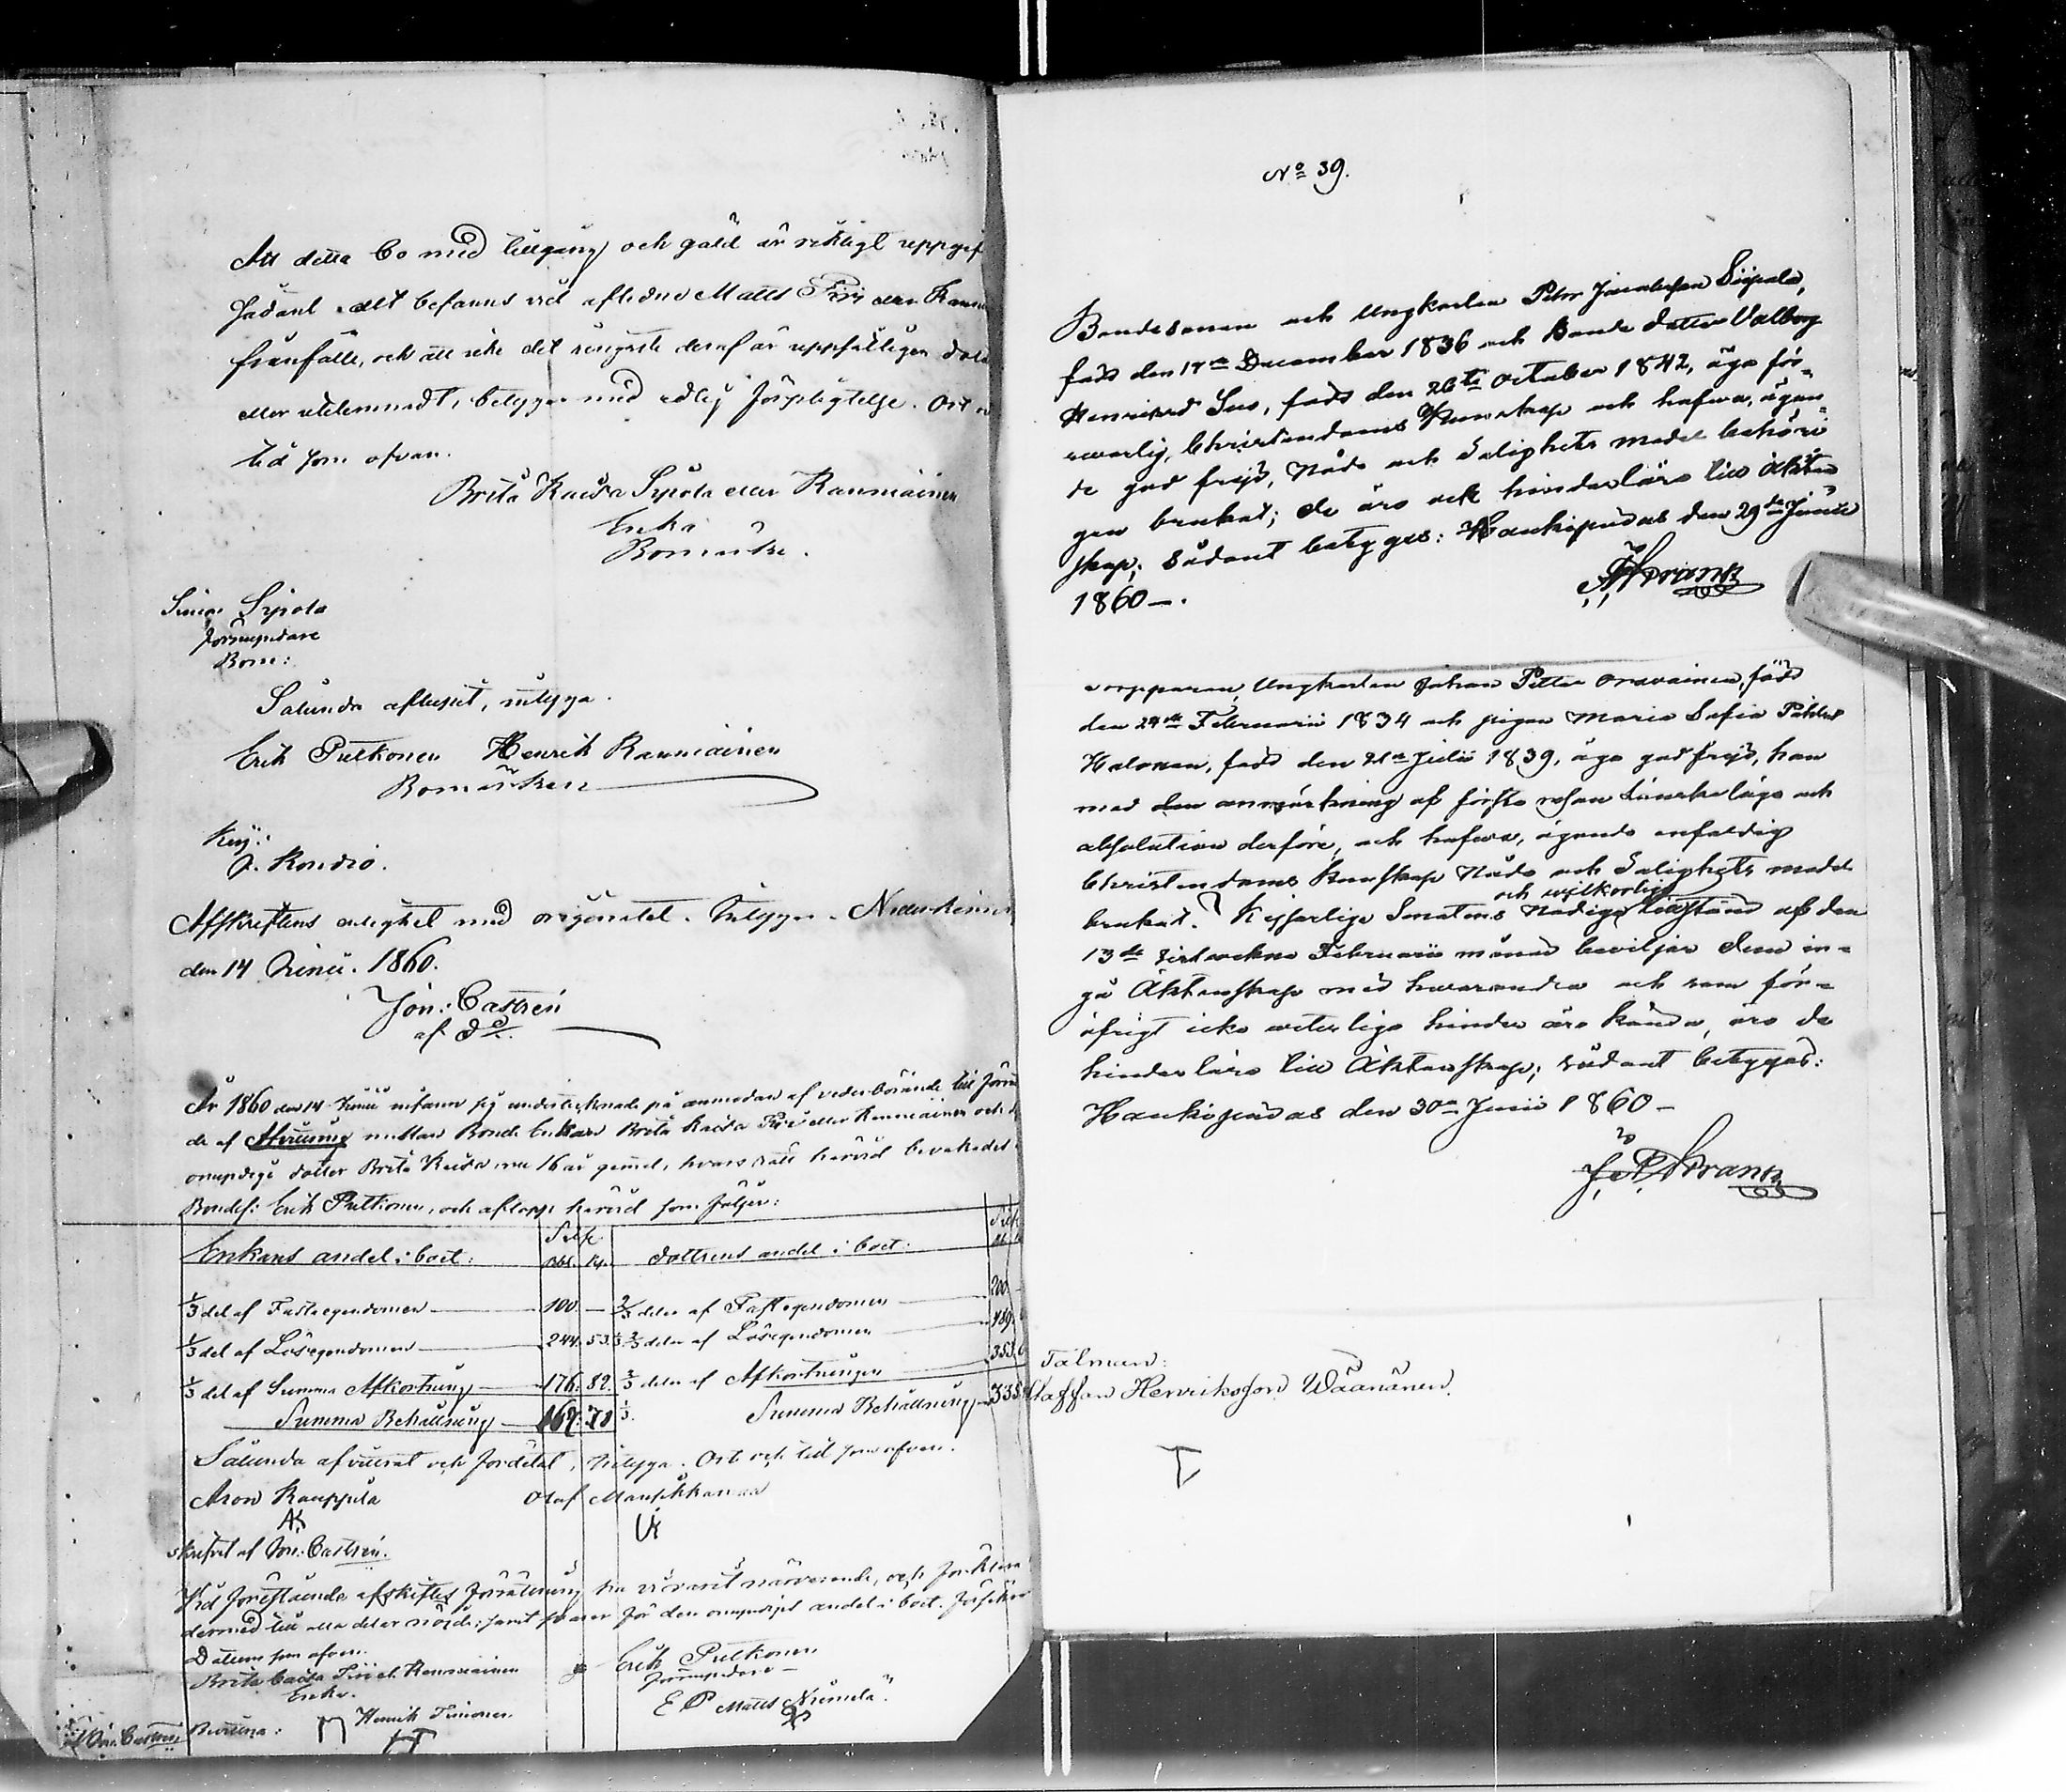 Att detta bo med tillgång och gäld är riktigt uppgif
sådant allt befanns vid aflidne Matts Piri eller
frånfälle, och att icke det ringaste deraf är uppsåtligen
eller utelemnadt, betygas med edlig förpligtelse. Ort o
tid som ofvan.
Brita Kaisa eller Raumiainen
Enka
Bomärke.
förmyndare
Bom:
Sålunda aflupit, intyga.
Erik Pulkonen Henrik Raumiainen
Bomärken
J. Rondio.
Afskriftens enlighet med originalet. Intygar
den 14 Junii 1860.
Jon: Castrén
År 1860 den 14 Junii infann sig undertecknade på anmodan af vederbörande till
de af mellan Bonde Enkan Brita Kaisa Piri eller Raumiainen och
omyndige dotter Brita Kaisa nu 16 år gammal, hvars rätt härvid bevakades
Bondes: Erik Pulkonen, och aflopp härvid som följer:
Silfr.
Enkans andel i boet: Rbl. Kp. Dottrens andel i boet:
1/3 del af Fastegendomen 100 — 2/3 delar af Fastegendomen 200
1/3 del af Lösegendomen 244. 53 1/3 2/3 delar af Lösegendomen 489.
1/3 del af Summa Afkortning 176. 82 2/3 delar af Afkortningen 353.
Summa Behållning 167. Summa Behållning 335
Sålunda afvittrat och fördelat, intyga. Ort och tid som ofvan.
Aron Kauppila Olof
skrifvit af Jon. Castrén.
Vid förestående afskiftes förrättning ha vi varit närvarande, och förklara
dermed till alla delar nöjde; samt svarar för den omyndiges andel i boet.
Datum som ofvan.
Brita Caisa Piri el. Raumiainen Erik Pulkonen
Enka. Förmyndare
E P Matts Niemelä.
Bevittna: Henrik Timonen.
Jon. Castrén
No 39.
Bondesonen och Ungkarlen Petter Jacobsson
född den December 1836 och Bonde dotter Valborg
Henriksd Suo, född den 26te October 1842, äga för-
swarlig Christendoms Kunskap och hafwa, ägan-
de god frejd, Nåde och Salighets medel behöri
gen brukat; de äro ock hinderlöse till Äkten
skap; sådant betygas: Haukipudas den 29de Junii
1860 —.
Ungkarlen Johan Petter Oravainen, född
den 24de Februarii 1834 och pigan Maria Sofia
Halonen, född den 21de Julii 1839, äga god frejd, han
med den anmärkning af första resan Lönskaläge och
absolution derföre, och hafwa, ägande enfaldig
Christendoms Kunskap Nåde och Salighets medel
och wilkorlige
brukat. Kejserliga Senatens Nådiga tillstånd af den
13de sistwekne Februarii månad beviljar dem in-
gå Äktenskap med hwarandra och som för-
öfrigt icke weterliga hinder äro kända, äro de
hinderlöse till Äktenskap; sådant betygas:
Haukipudas den 30de Junii 1860 —
Talman:
Staffan Henriksson Wäänänen.